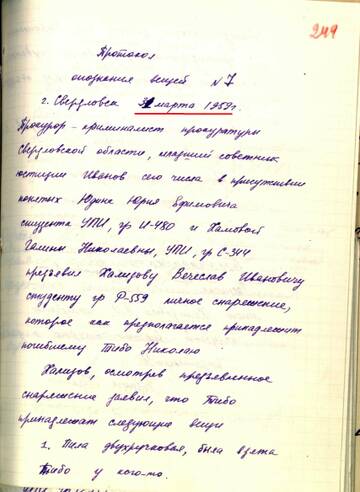 249
Протокол
опознания вещей №7
г. Свердловск 31 марта 1959г.
Прокурор-криминалист прокуратуры
Свердловской области, младший советник
юстиции Иванов сего числа в присутствии
понятых Юдина Юрия Ефимовича
студента УПИ, гр И-480 и Хализовой
Галины Николаевны, УПИ, гр С-344
предъявил Хализову Вечеслав Ивановичу
студенту гр Р-559 личное снаряжение,
которое как предполагается принадлежит
погибшему Тибо Николаю
Хализов, осмотрев предъявленное
снаряжение заявил, что Тибо
принадлежат следующие вещи
1. Пила двухручковая, была взята
Тибо у кого-то.